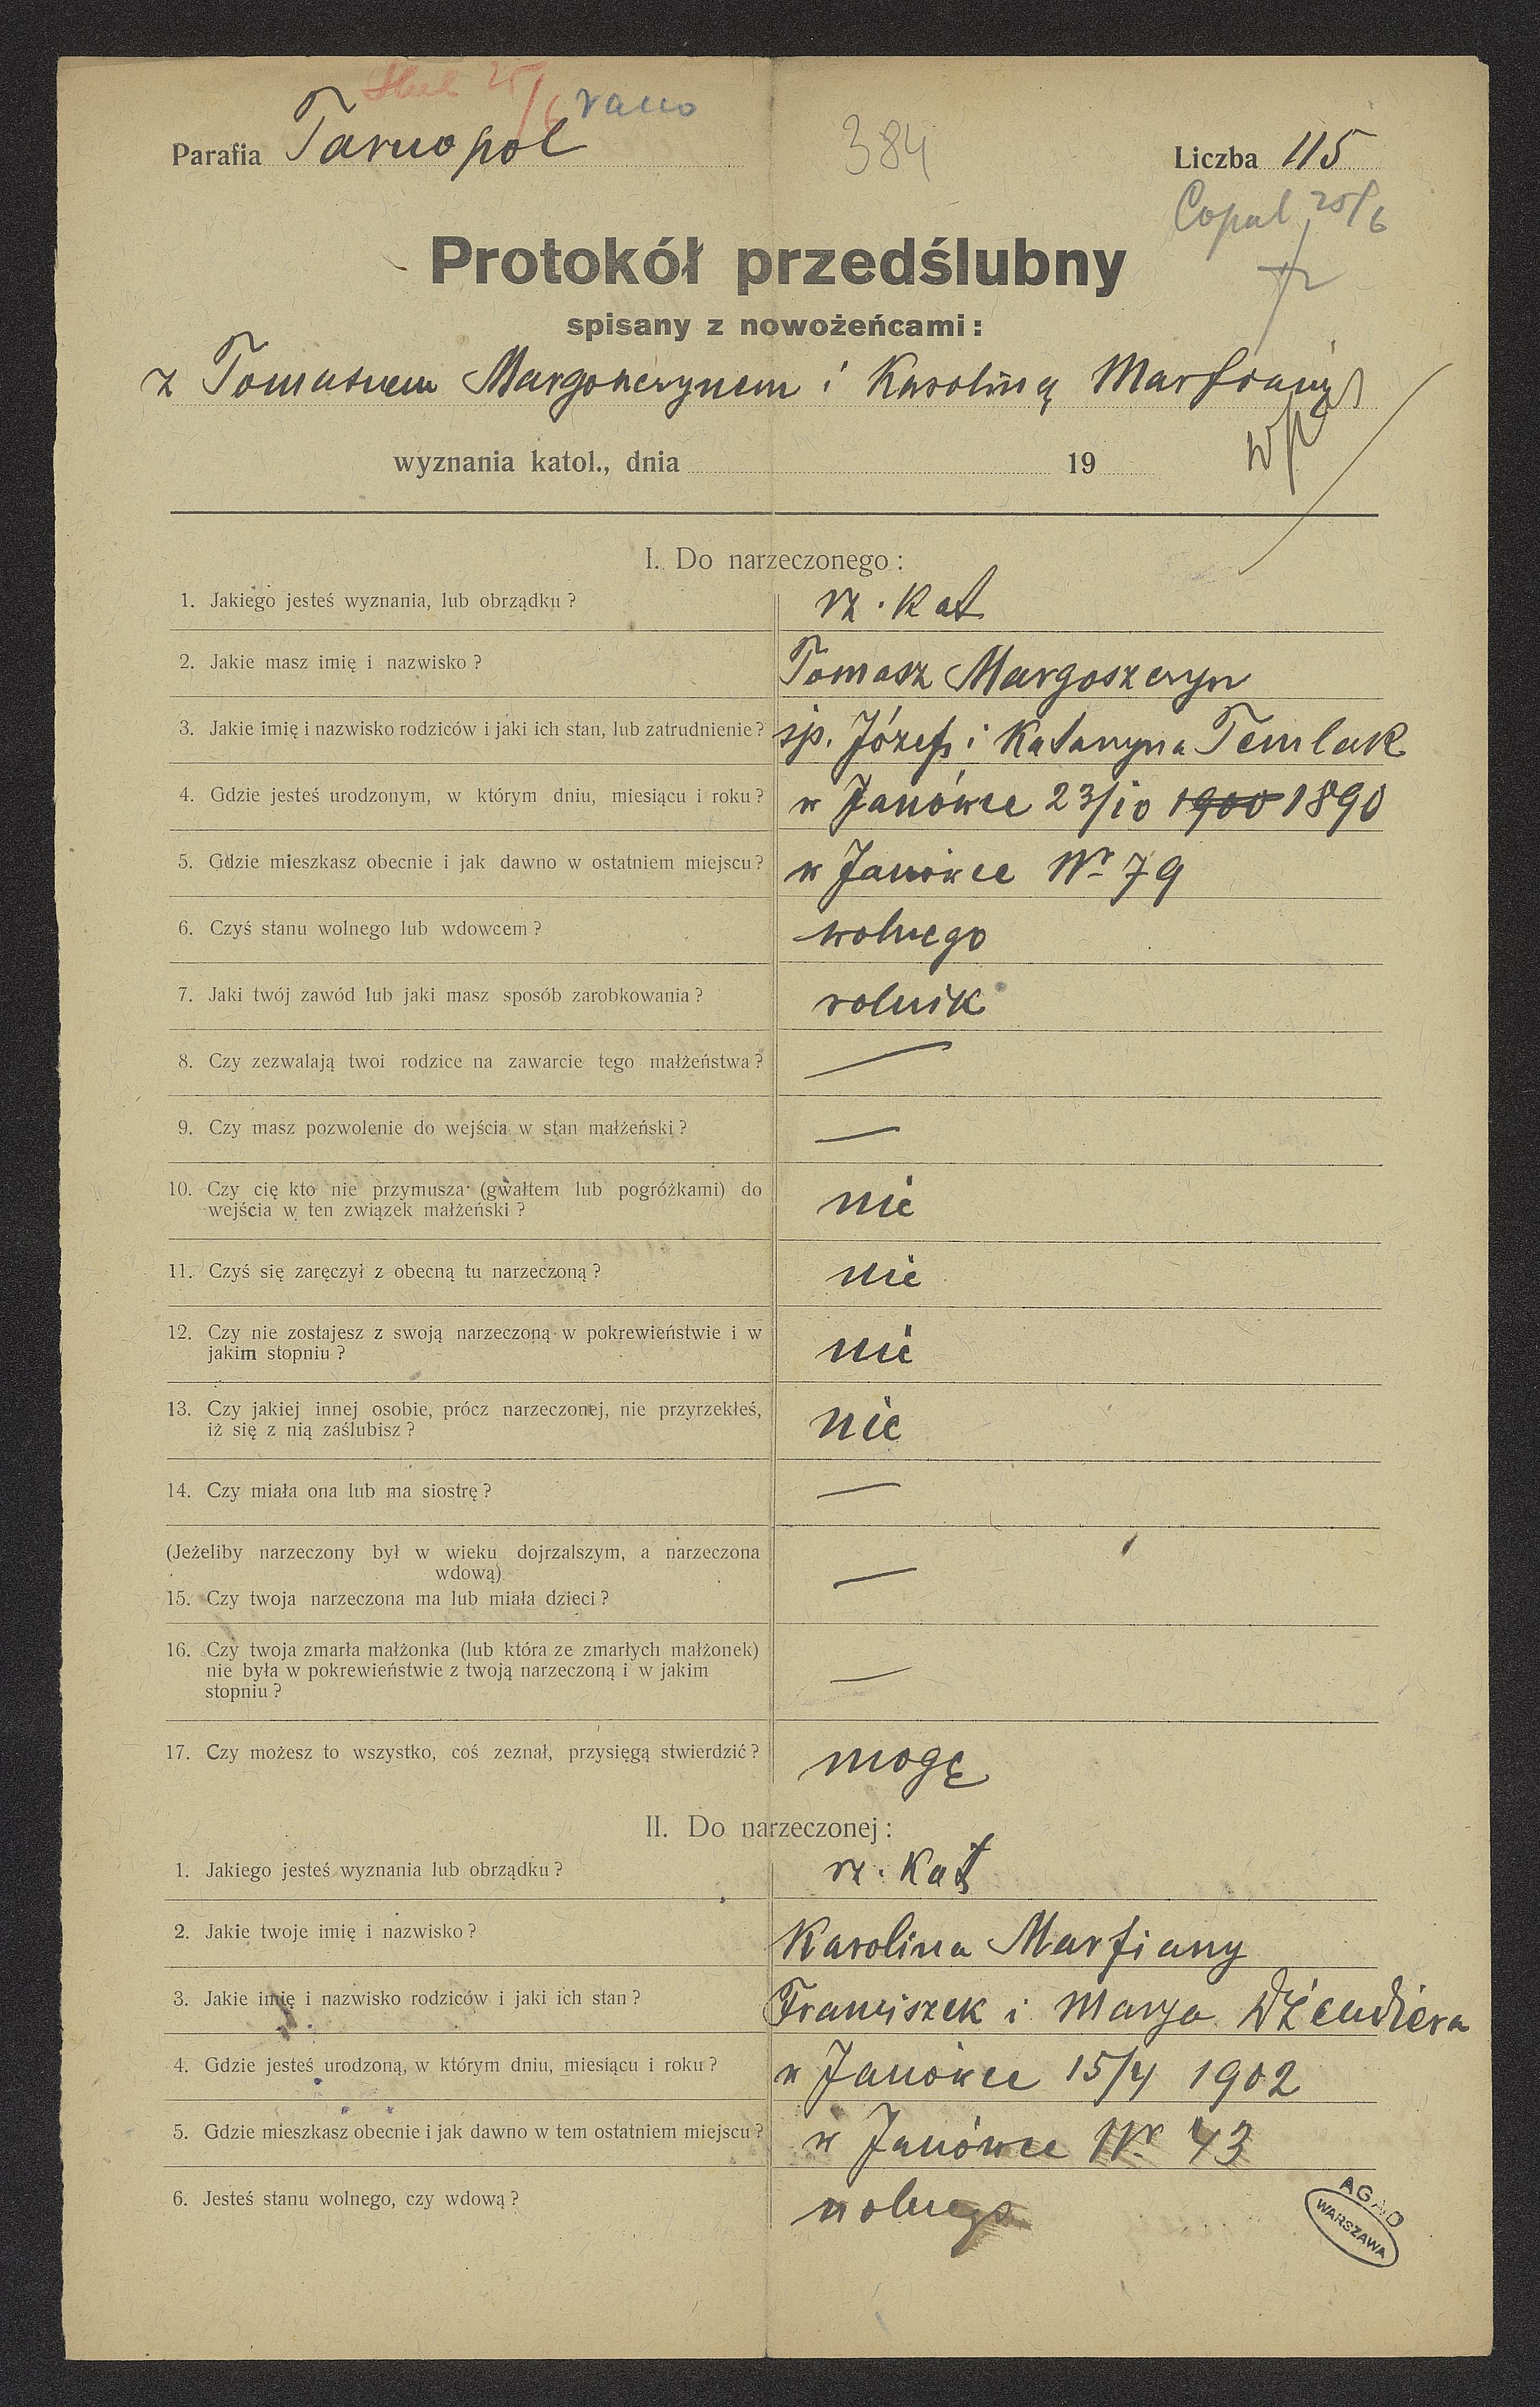 25/6 rano
Parafia Tarnopol 384 Liczba 115
Copul 25/6
Protokół przedślubny
spisany z nowożeńcami:
z Tomaszem Margoszczynem i Karoliną Marfiany
wyznania katol., dnia 19
I. Do narzeczonego:
1. Jakiego jesteś wyznania, lub obrządku? rz. kat
2. Jakie masz imię i nazwisko? Tomasz Margoszczyn
3. Jakie imię i nazwisko rodziców i jaki ich stan, lub zatrudnienie? śp. Józef i Katarzyna Temlak
4. Gdzie jesteś urodzonym, w którym dniu, miesiącu i roku? w Janówce 23/10 1900 1890
5. Gdzie mieszkasz obecnie i jak dawno w ostatniem miejscu? w Janówce Nr 79
6. Czyś stanu wolnego lub wdowcem? wolnego
7. Jaki twój zawód lub jaki masz sposób zarobkowania? rolnik
8. Czy zezwalają twoi rodzice na zawarcie tego małżeństwa? —
9. Czy masz pozwolenie do wejścia w stan małżeński? —
10. Czy cię kto nie przymusza (gwałtem lub pogróżkami) do
wejścia w ten związek małżeński? nie
11. Czyś się zaręczył z obecną tu narzeczoną? nie
12. Czy nie zostajesz z swoją narzeczoną w pokrewieństwie i w
jakim stopniu? nie
13. Czy jakiej innej osobie, prócz narzeczonej, nie przyrzekłeś,
iż się z nią zaślubisz? nie
14. Czy miała ona lub ma siostrę? —
(Jeżeliby narzeczony był w wieku dojrzalszym, a narzeczona
wdową)
15. Czy twoja narzeczona ma lub miała dzieci? —
16. Czy twoja zmarła małżonka (lub która ze zmarłych małżonek)
nie była w pokrewieństwie z twoją narzeczoną i w jakim
stopniu? —
17. Czy możesz to wszystko, coś zeznał, przysięgą stwierdzić? mogę
II. Do narzeczonej:
1. Jakiego jesteś wyznania lub obrządku? rz. kat
2. Jakie twoje imię i nazwisko? Karolina Marfiany
3. Jakie imię i nazwisko rodziców i jaki ich stan? Franciszek i Marya Dżendiera
4. Gdzie jesteś urodzoną, w którym dniu, miesiącu i roku? w Janówce 15/4 1902
5. Gdzie mieszkasz obecnie i jak dawno w tem ostatniem miejscu? w Janówce Nr 43
6. Jesteś stanu wolnego, czy wdową? wolnego
AGAD
WARSZAWA